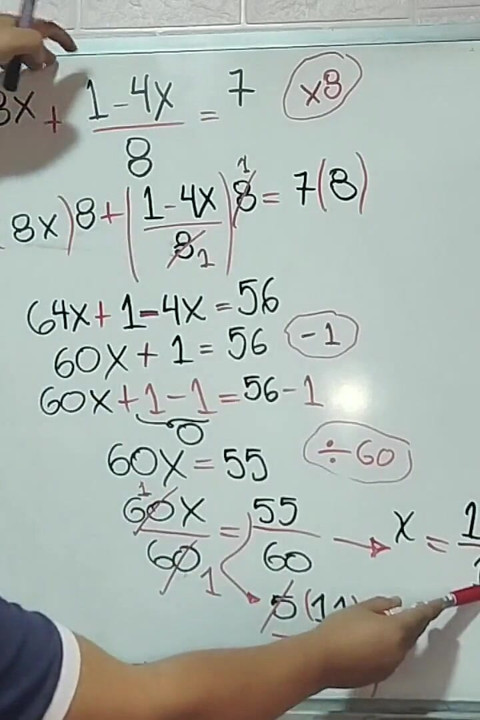 8x + 1-4x/8 = 7 ×8
8x)8+(1-4x/8 1)8 1 = 7(8)
64x+1-4x=56
60x+1=56 -1
60x+1-1=56-1
0
60x=55 ÷60
1 60x/60 1 = 55/60 → x = 1
5(11